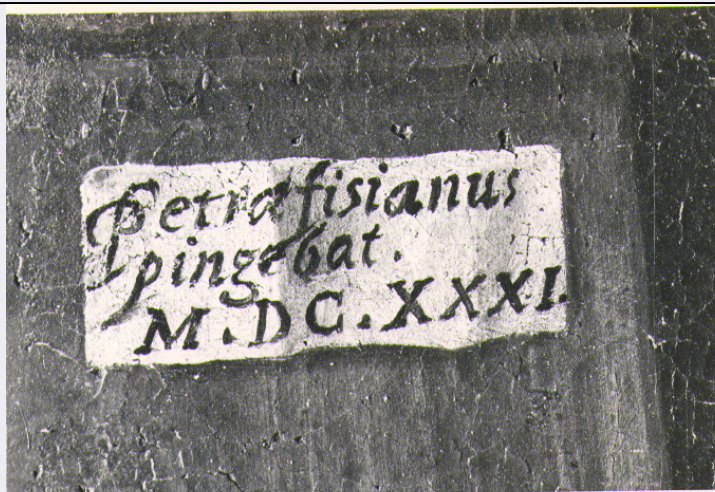 Petræfisianus
pingebat.
M.DC.XXXI.